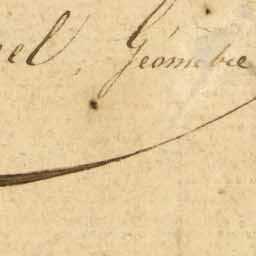 el, Géomètre